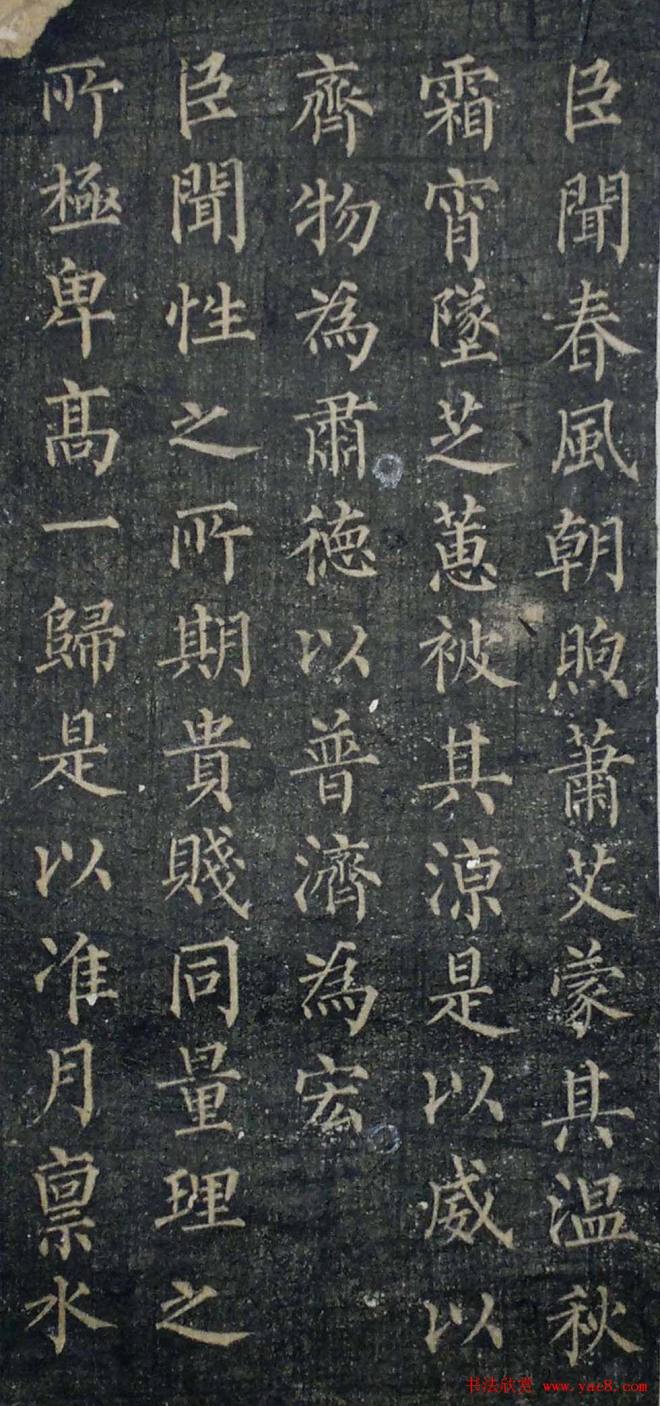 臣聞春風朝煦蕭艾蒙其温秋
霜宵墜芝蕙被其涼是以威以
齊物為肅德以普濟為宏
臣聞性之所期貴賤同量理之
所極卑高一歸是以准月禀水
书法欣赏 www.yac8.com